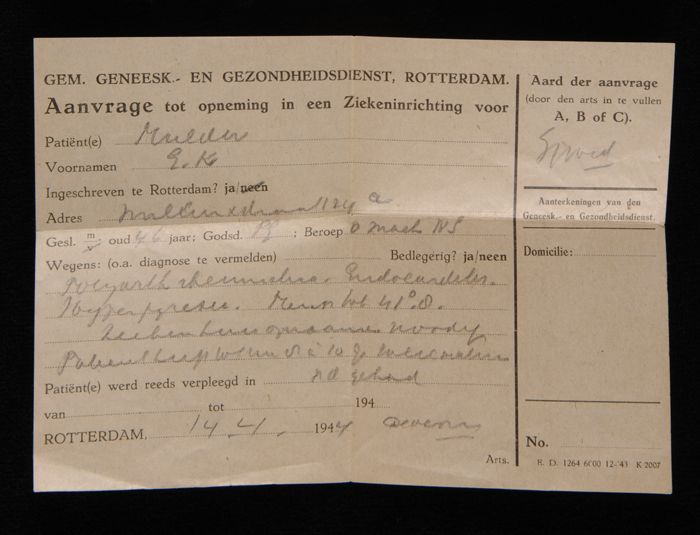 GEM. GENEESK.- EN GEZONDHEIDSDIENST, ROTTERDAM.
Aanvrage tot opneming in een Ziekeninrichting voor
Patiënt(e) Mulder
Voornamen E. K.
Ingeschreven te Rotterdam? ja/neen
Adres 124 a
Gesl. m/v oud 46 jaar; Godsd. ; Beroep NS
Wegens: (o.a. diagnose te vermelden) Bedlegerig? ja/neen
Polyarth rheumatica. Endocarditis.
Hyperpyrexie. tot 41°.8.
Ziekenhuisopname noodig
Patient
Patiënt(e) werd reeds verpleegd in
van tot 194
ROTTERDAM, 14-4. 1944
Arts.
Aard der aanvrage
(door den arts in te vullen
A, B of C).
Spoed
Aanteekeningen van den
Geneesk.- en Gezondheidsdienst.
Domicilie:
No.
E. D. 1264 6000 12-'43 K 2007